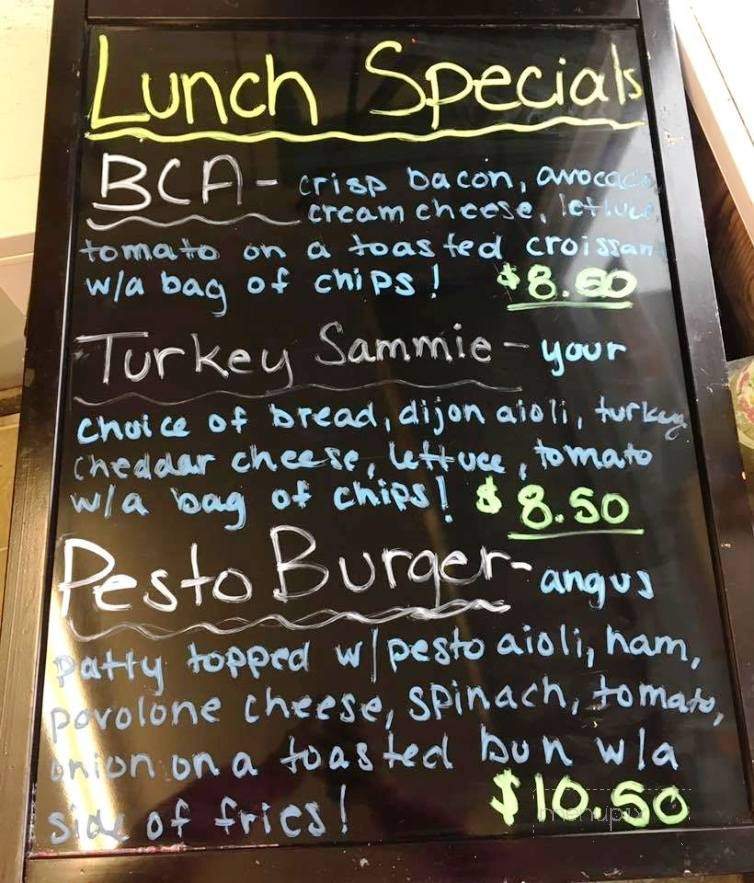 Lunch Specials
BCA - crisp bacon, avocado
cream cheese, lettuce
tomato on a toasted croissant
w/a bag of chips! $8.50
Turkey Sammie - your
choice of bread, dijon aioli, turkey
cheddar cheese, lettuce, tomato
w/a bag of chips! $8.50
Pesto Burger - angus
patty topped w/pesto aioli, ham,
povolone cheese, spinach, tomato,
onion on a toasted bun w/a
side of fries! $10.50
menupix